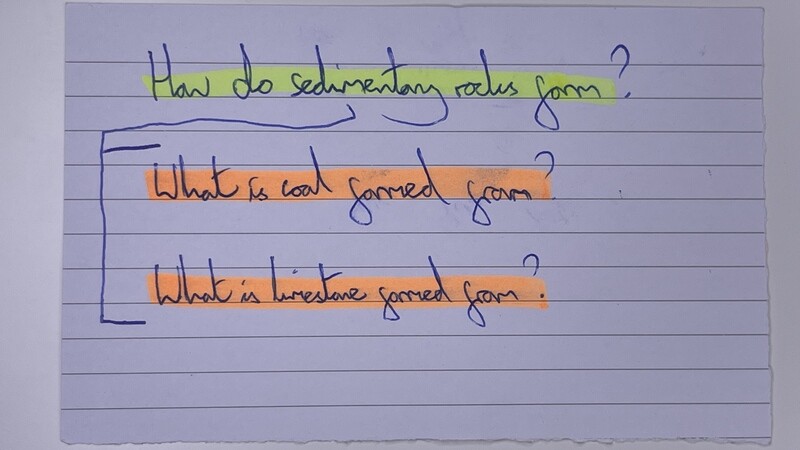 How do sedimentary rocks form?
What is coal formed from?
What is limestone formed from?